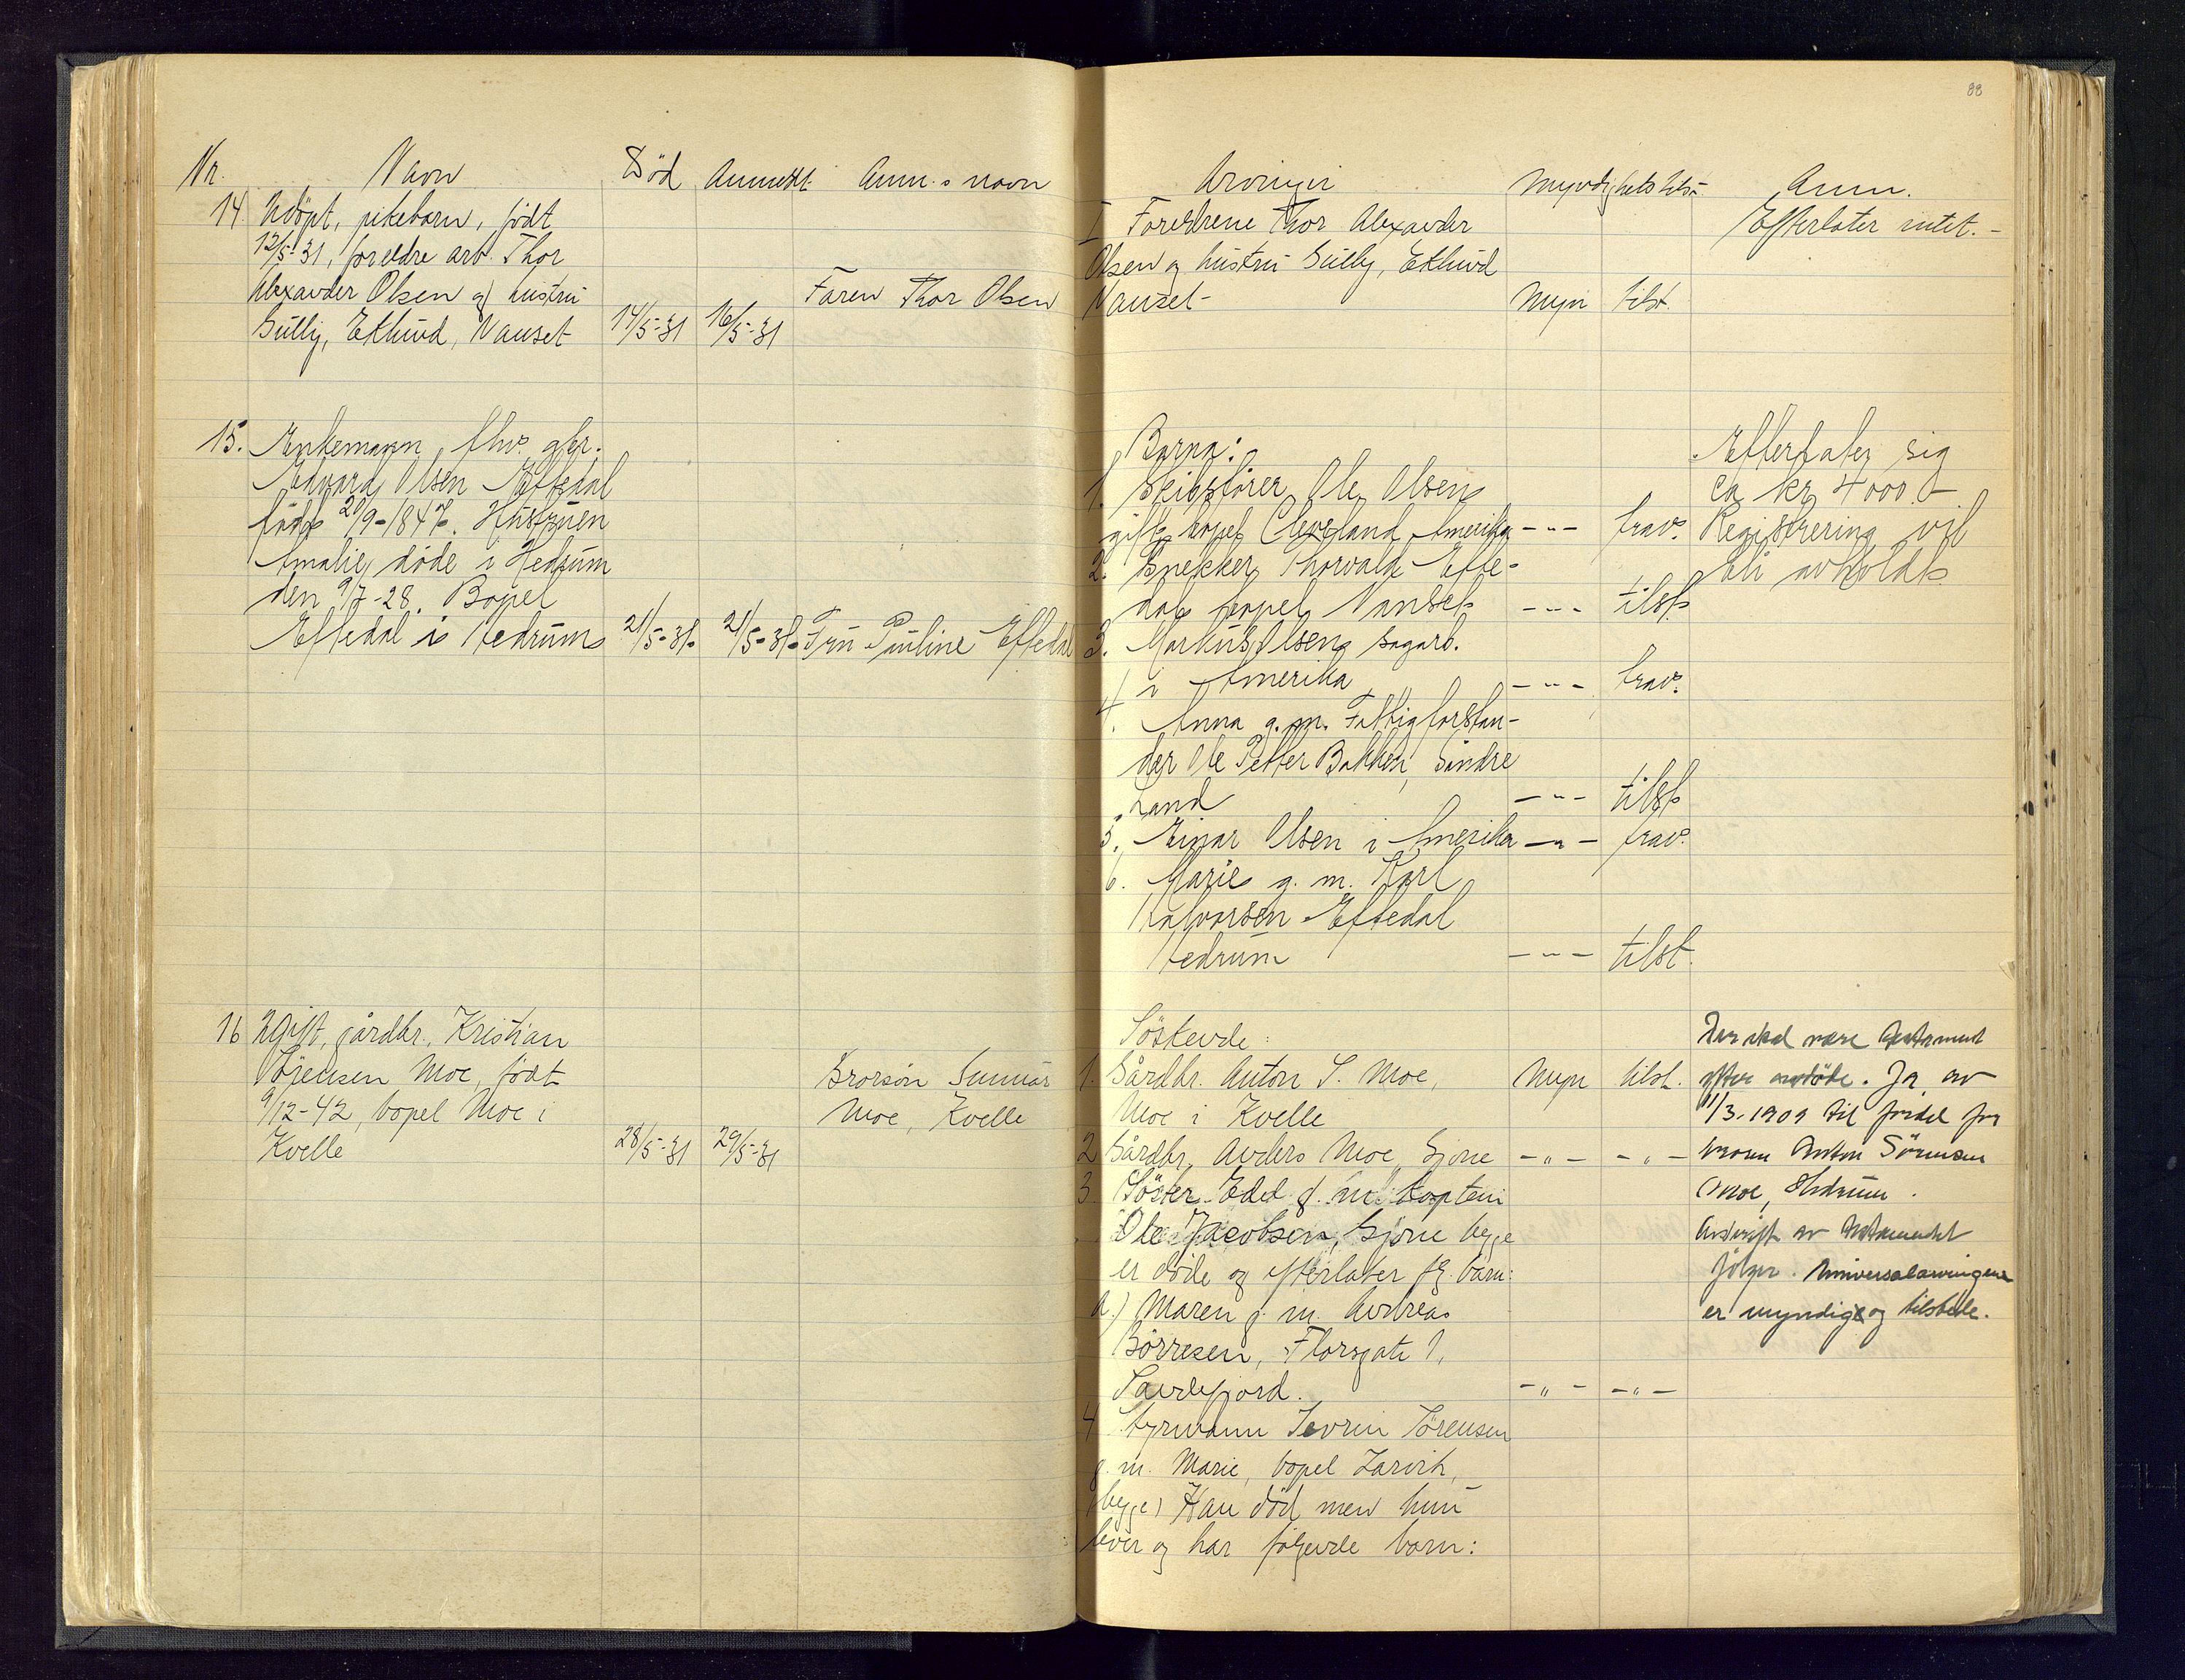 88
Nr. Navn Död Anmeldt. Anm.s navn
14 Udöpt, pikebarn, födt
12/5-31, foreldre arb. Thor
Alexander Olsen og hustru
Gully, Eklund, Nanset 14/5-31 16/5-31 Faren Thor Olsen
15. Enkemann, fhv. gbr.
Edvard Olsen Eftedal
födt 20/9-1847. Hustruen
Amalie döde i Hedrum
den 9/7-28. Bopel
Eftedal i Hedrum 21/5-31. 21/5-31. Fru Pauline Eftedal
16 Ugift, gårdbr. Kristian
Sörensen Moe, födt
9/12-42, bopel Moe i
Kvelle 28/5-31 29/5-31
Brorsön Gunnar
Moe, Kvelle
Arvinger Myndighetstilst. Anm.
I Foreldrene Thor Alexander Efterlater intet.-
Olsen og hustru Gully, Eklund
Nanset- Myn tilst.
Barna:
1. Skibsförer Ole Olsen
gift bopel Cleveland Amerika -"- frav.
2. Snekker Thorvald Efte-
dal bopel Nanset -"- tilst.
3. Markus Olsen sagarb.
i Amerika -"- frav.
4. Anna g.m. Fattigforstan-
der Ole Petter Bakken, Söndre
Land -"- tilst
5. Einar Olsen i Amerika -"- frav.
6. Marie g. m. Karl
Halvorsen Eftedal
Hedrum -"- tilst.
Efterlater sig
ca kr 4000.-
Registrering vil
bli avholdt
Söskende:
1. Gårdbr. Anton S. Moe, Myn tilst.
Moe i Kvelle
2 Gårdbr. Anders Moe, Gjone -"- -"-
3 Söster Edel g. m. kaptein
Ole Jacobsen, Gjone begge
er döde og efterlater fg. barn:
a.) Maren g. m. Andreas
Börresen, Florsgate 1,
Sandefjord. -"- -"-
4 Styrmann Severin Sörensen
g. m. Marie, bopel Larvik,
(begge) Han död men hun
lever og har følgende barn:
Der skal være testament
efter avdöde. Ja av
11/3-1909 til fordel for
broren Anton Sörensen
Moe, Hedrum.
Avskrift av testamentet
fölger. Universalarvingene
er myndige og tilstede.